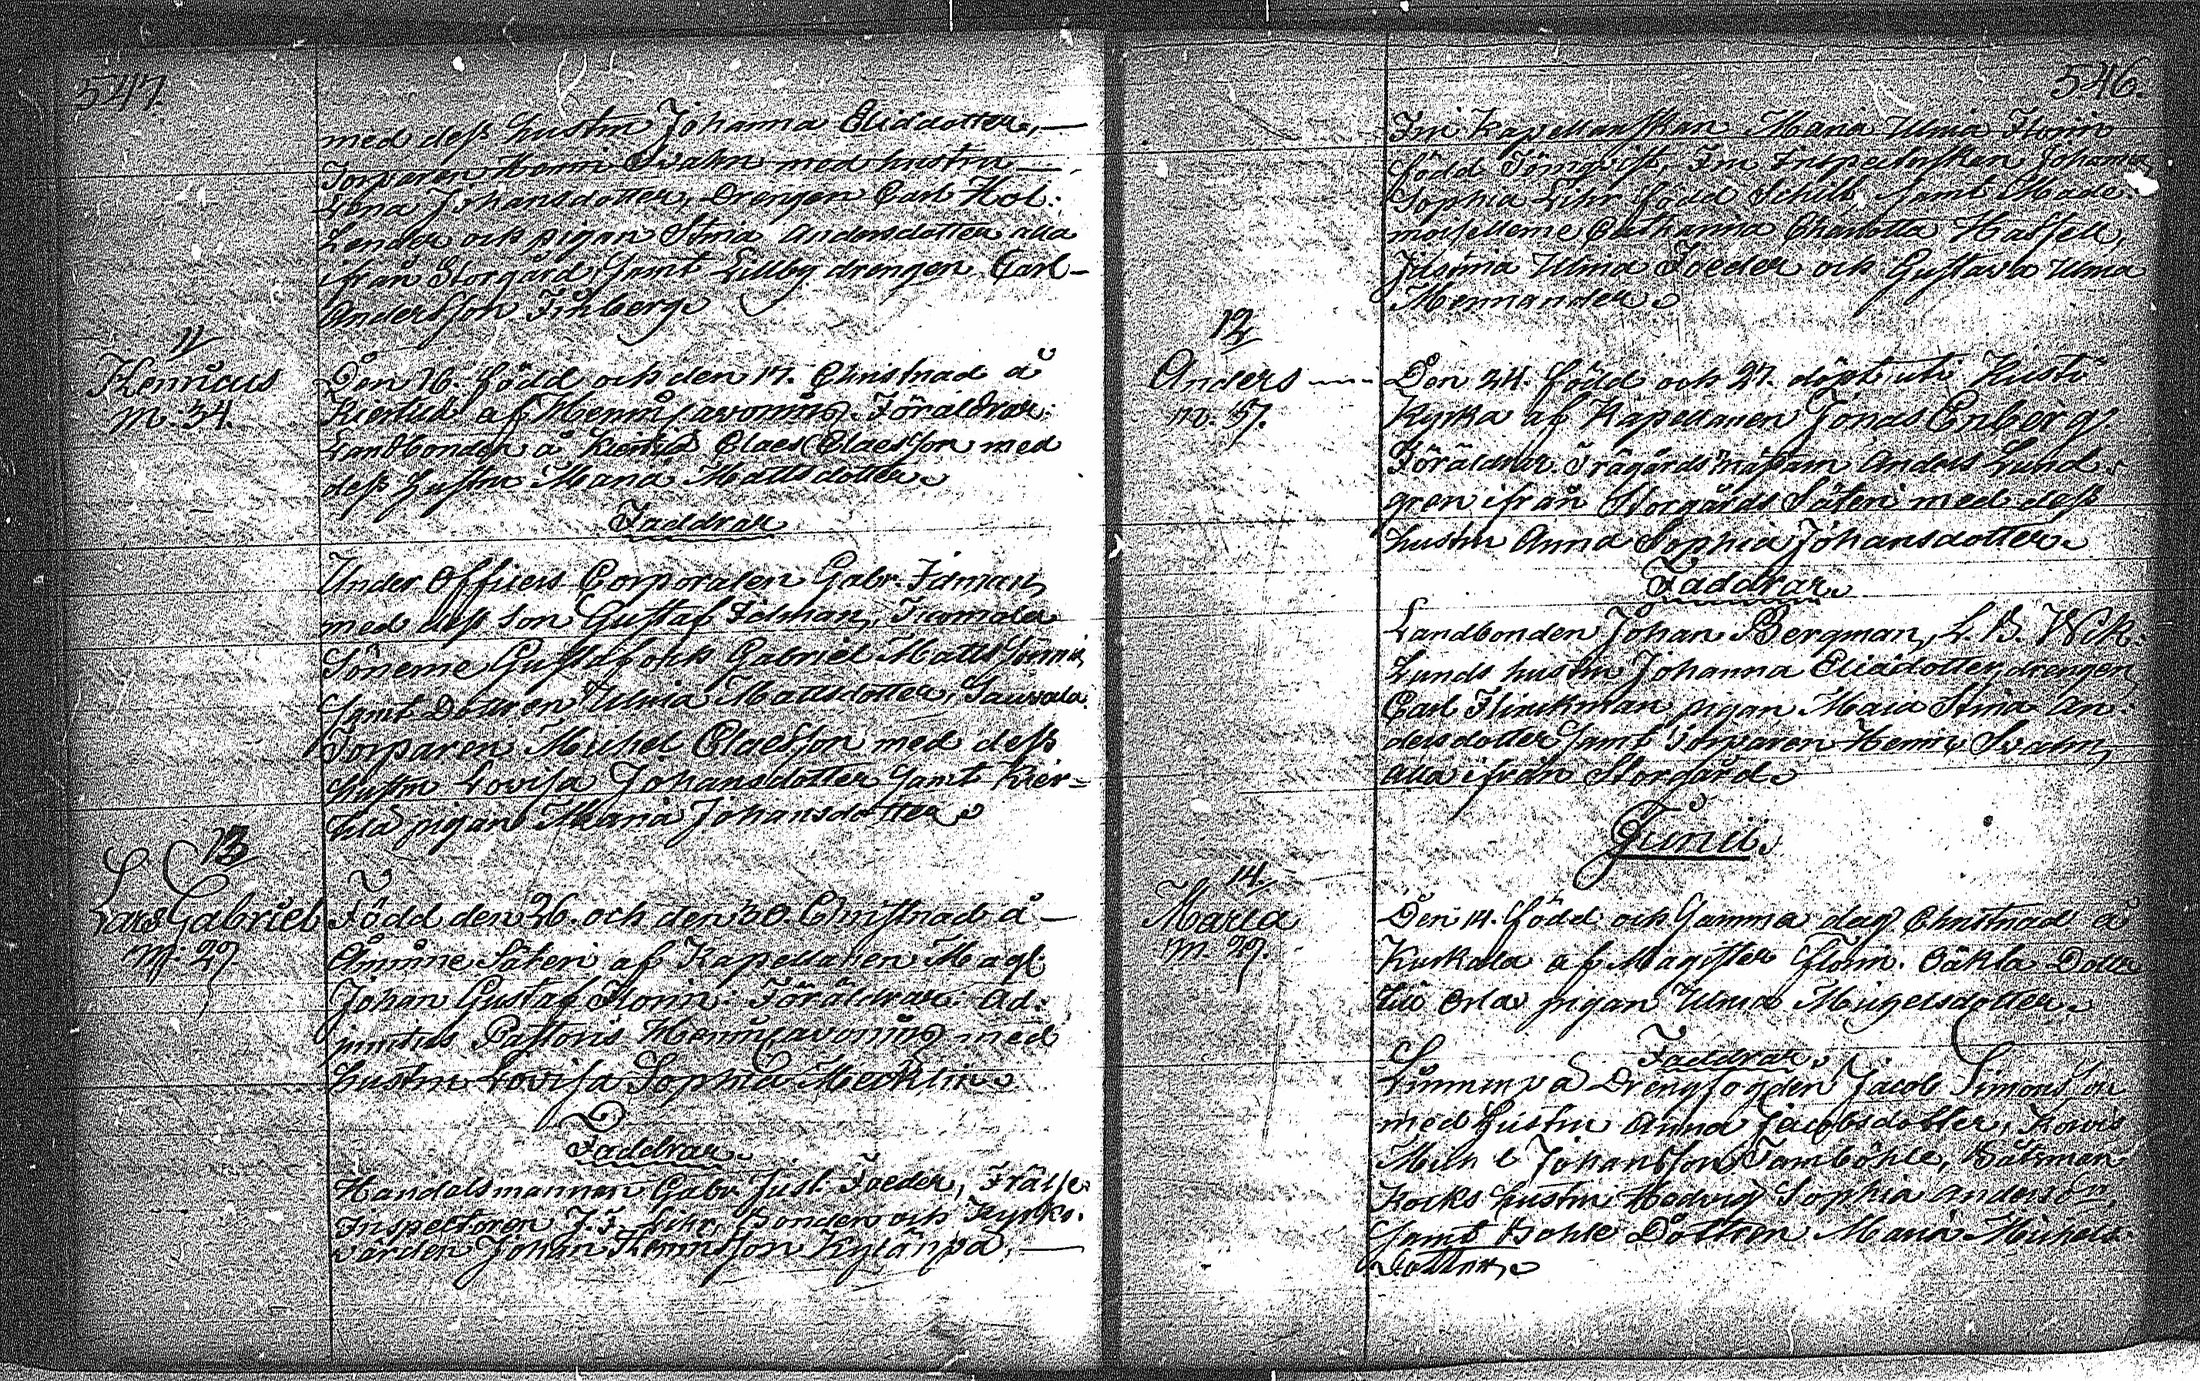 547.
med dess hustru Johanna Eliædotter, —
Torparen Henric Svahn med hustru —
Lena Johansdotter, Drengen Carl Hol:
lender och pigan Stina Andersdotter alla
ifrån Storgård, samt Lillby drengen Carl –
Andersson Finberg.
11
Henricus
m. 34.
Den 16. född och den 17. Christnad å
Kierkilä af Henricavonius. Föräldrar:
Landbonden å Claes Claesson med
dess hustru Maria Mattsdotter.
Faddrar
Under Officers Corporalen Gabr. Idman,
med dess son Gustaf Idman,
Sönerne Gustaf och Gabriel Mattssönner,
samt Dottren Ulrica Mattsdotter,
Torparen Michel Claesson med dess
hustru Lovisa Johansdotter samt Kier=
kilä pigan Maria Johansdotter.
13
Lars Gabriel
m. 29
Född den 26. och den 30. Christnad å —
Åminne Säteri af Kapellanen Mag.
Johan Gustaf Florin. Föräldrar: Ad:
junctus Pastoris Henricavonius med
hustru Lovisa Sophia Mecklin.
Faddrar.
Handelsmannen Gabr. Just. Foeder, Frälse
Inspectoren J. F. Lihr, Bonden och Kyrko:
värden Johan Thomasson Kylänpä, —
546.
Fru Kapellanskan Maria Ulrica Florin
född Törnqvist, Fru Inspectorskan Johanna
Sophia Lihr född Schilt, samt Made:
moisellerne Catharina Charlotta Hassell,
Ulrica Foeder och Gustava Ulrica
Mennander.
12
Anders ----
m. 37.
Den 24. född och 27. döpt uti Kustö
Kyrka af Kapellanen Jonas Enberg.
Föräldrar Trägårdsmästaren Anders Lund:
gren ifrån Storgårds Säteri med dess
hustru Anna Sophia Johansdotter.
Faddrar.
Landbonden Johan Bergman, L. B. Wik:
lunds hustru Johanna Eliædotter, drengen
Carl Flinckman, pigan Maia Stina An:
dersdotter samt Torparen Henric Svahn,
alla ifrån Storgård.
Junii.
14.
Maria
m. 29.
Den 14. född och samma dag Christnad å
Kuskala af Magister Florin. Oäkta Dotter
till Orla pigan Ulrica Michelsdotter.
Faddrar.
Drengfogden Jacob Simonsson
med hustru Anna Jacobsdotter,
Michel Johansson Tamböhle, Båtsman
Kocks hustru Hedvig Sophia Andersdr.,
samt Bohle Dottren Maria Michels:
dotter.